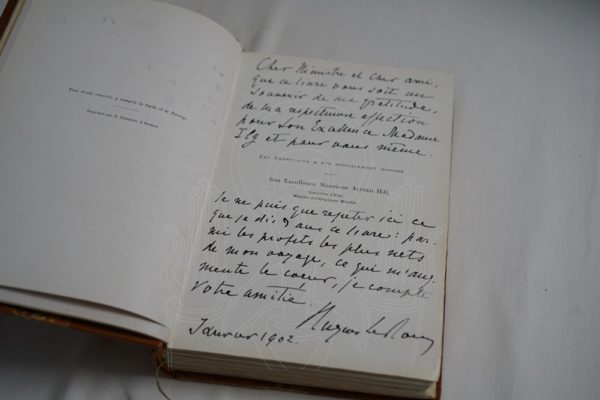 Tous droits réservés, y compris la Suède et la Norvège.
Imprimé par
Cher Ministre et cher ami,
que ce livre vous soit un
souvenir de ma gratitude,
de ma respectueuse affection
pour Son Excellence Madame
Ilg et pour vous même.
Cet Exemplaire a été spécialement imprimé
pour
Son Excellence Monsieur Alfred ILG,
Conseiller d'État,
Ministre de l'Empereur Ménélik
Je ne puis que répéter ici ce
que je dis dans ce livre : par-
mi les profits les plus nets
de mon voyage, ce qui m'aug
mente le coeur, je compte
votre amitié.
Hugues Le Roux
Janvier 1902.